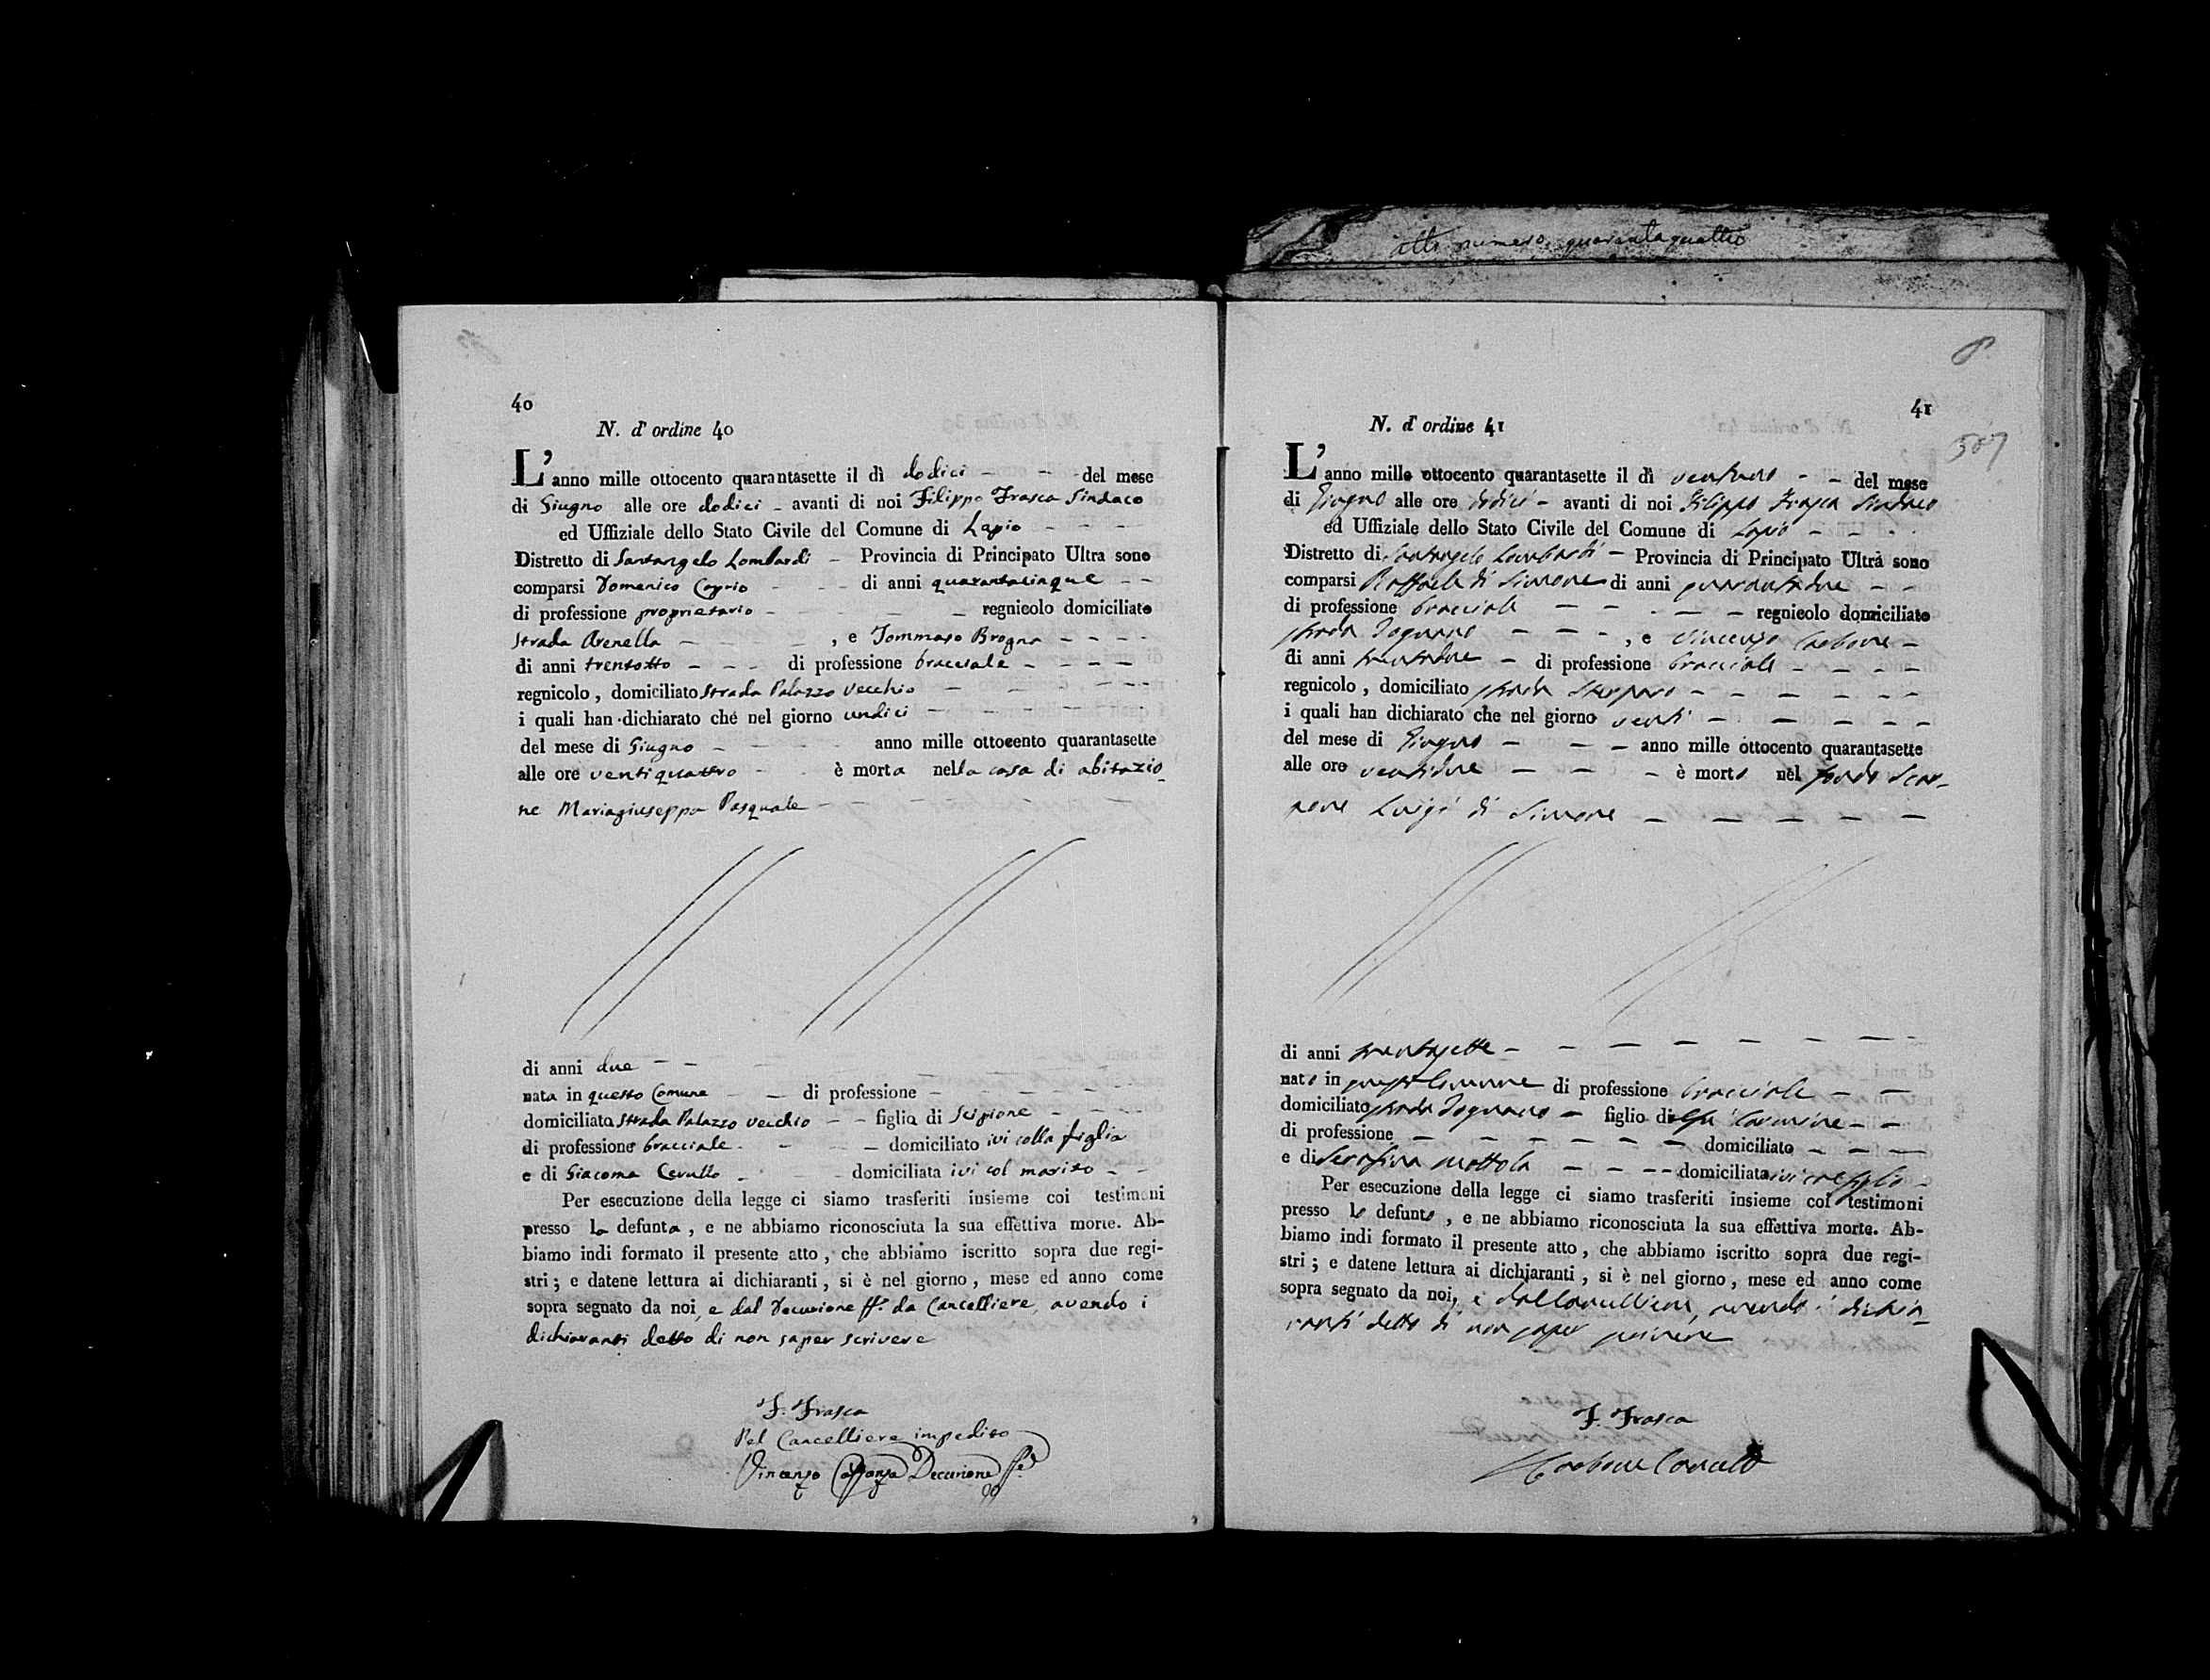 atto numero quarantaquattro
40
N. d' ordine 40
L'anno mille ottocento quarantasette il dì dodici - - - del mese
di Giugno alle ore dodici - avanti di noi Filippo Frasca Sindaco
ed Uffiziale dello Stato Civile del Comune di Lapio - - -
Distretto di Santangelo Lombardi - Provincia di Principato Ultra sono
comparsi Domenico Caprio - - di anni quarantacinque - -
di professione proprietario - - regnicolo domiciliato
Strada Arenella - - , e Tommaso Brogna - - - -
di anni trentotto - - - di professione bracciale - - - -
regnicolo, domiciliato Strada Palazzo Vecchio - - - - -
i quali han dichiarato che nel giorno undici - - - - -
del mese di Giugno - - - anno mille ottocento quarantasette
alle ore ventiquattro - - è morta nella casa di abitazio-
ne Mariagiuseppa Pasquale - - - - -
di anni due - -
nata in questo Comune - - di professione - - - -
domiciliata Strada Palazzo Vecchio - - figlia di Scipione - - - -
di professione bracciale - - - - domiciliato ivi colla figlia
e di Giacoma Cerullo - - - domiciliata ivi col marito - -
Per esecuzione della legge ci siamo trasferiti insieme coi testimoni
presso la defunta, e ne abbiamo riconosciuta la sua effettiva morte. Ab-
biamo indi formato il presente atto, che abbiamo iscritto sopra due regi-
stri; e datene lettura ai dichiaranti, si è nel giorno, mese ed anno come
sopra segnato da noi, e dal Decurione ff. da Cancelliere, avendo i
dichiaranti detto di non saper scrivere
F. Frasca
Pel Cancelliere impedito
Vincenzo Decurione ff.
41
507
N. d' ordine 41
L'anno mille ottocento quarantasette il dì ventuno - - del mese
di Giugno alle ore dodici - avanti di noi Filippo Frasca Sindaco
ed Uffiziale dello Stato Civile del Comune di Lapio - - - -
Distretto di Santangelo Lombardi - Provincia di Principato Ultra sono
comparsi Raffaele di Simone di anni quarantadue - -
di professione bracciale - - - - - regnicolo domiciliato
strada - - - , e Vincenzo Carbone -
di anni trentadue - di professione bracciale - - - -
regnicolo, domiciliato strada - - - - - -
i quali han dichiarato che nel giorno venti - - - - -
del mese di Giugno - - - anno mille ottocento quarantasette
alle ore ventidue - - - è morto nel fondo Scar-
pone Luigi di Simone - - - - -
di anni trentasette - - - - - - - -
nato in questo Comune di professione bracciale - -
domiciliato strada - figlio di fu Carmine - -
di professione - - - - - - domiciliato - - -
e di Serafina Mottola - - - - domiciliata ivi col figlio -
Per esecuzione della legge ci siamo trasferiti insieme coi testimoni
presso lo defunto, e ne abbiamo riconosciuta la sua effettiva morte. Ab-
biamo indi formato il presente atto, che abbiamo iscritto sopra due regi-
stri; e datene lettura ai dichiaranti, si è nel giorno, mese ed anno come
sopra segnato da noi, e dal Cancelliere, avendo i dichia-
ranti detto di non saper scrivere
F. Frasca
Carbone